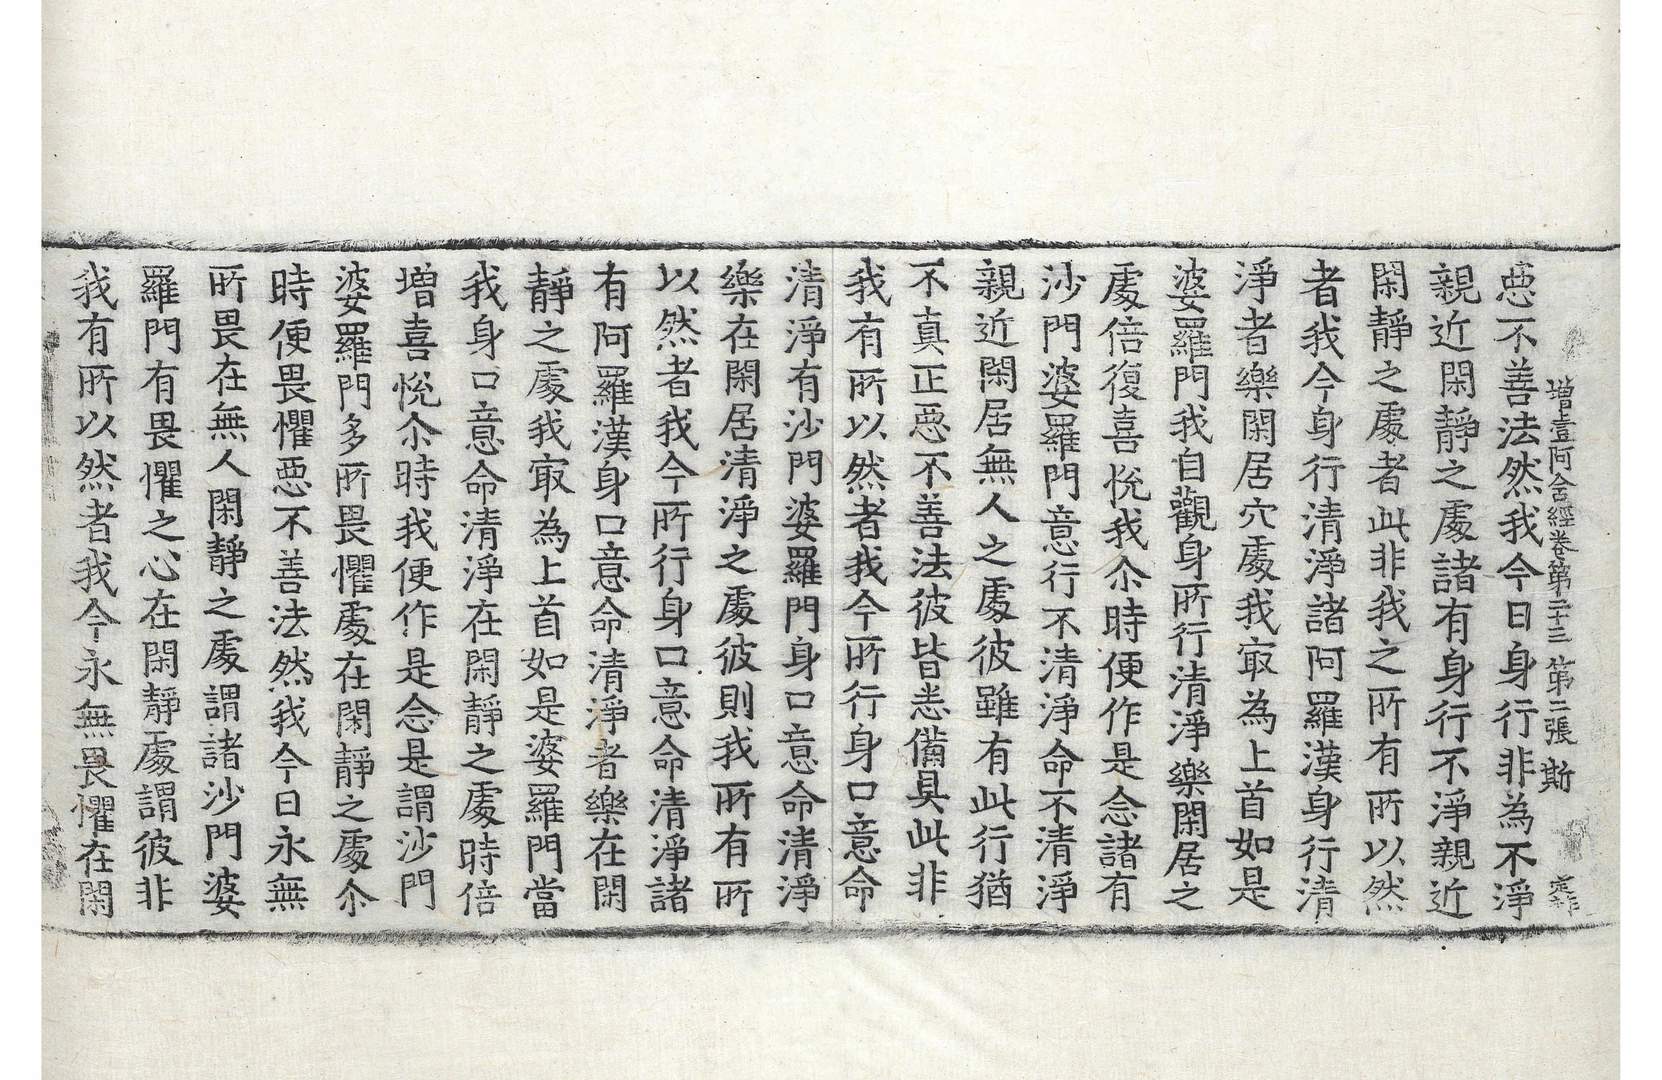 增壹阿含經卷第二十三 第二張 斯
惡不善法然我今日身行非為不淨
親近閑靜之處諸有身行不淨親近
閑靜之處者此非我之所有所以然
者我今身行清淨諸阿羅漢身行清
淨者樂閑居穴處我冣為上首如是
婆羅門我自觀身所行清淨樂閑居之
處倍復喜悅我尒時便作是念諸有
沙門婆羅門意行不清淨命不清淨
親近閑居無人之處彼雖有此行猶
不真正惡不善法彼皆悉備具此非
我有所以然者我今所行身口意命
清淨有沙門婆羅門身口意命清淨
樂在閑居清淨之處彼則我所有所
以然者我今所行身口意命清淨諸
有阿羅漢身口意命清淨者樂在閑
靜之處我冣為上首如是婆羅門當
我身口意命清淨在閑靜之處時倍
增喜悅尒時我便作是念是謂沙門
婆羅門多所畏懼處在閑靜之處尒
時便畏懼惡不善法然我今日永無
所畏在無人閑靜之處謂諸沙門婆
羅門有畏懼之心在閑靜處謂彼非
我有所以然者我今永無畏懼在閑